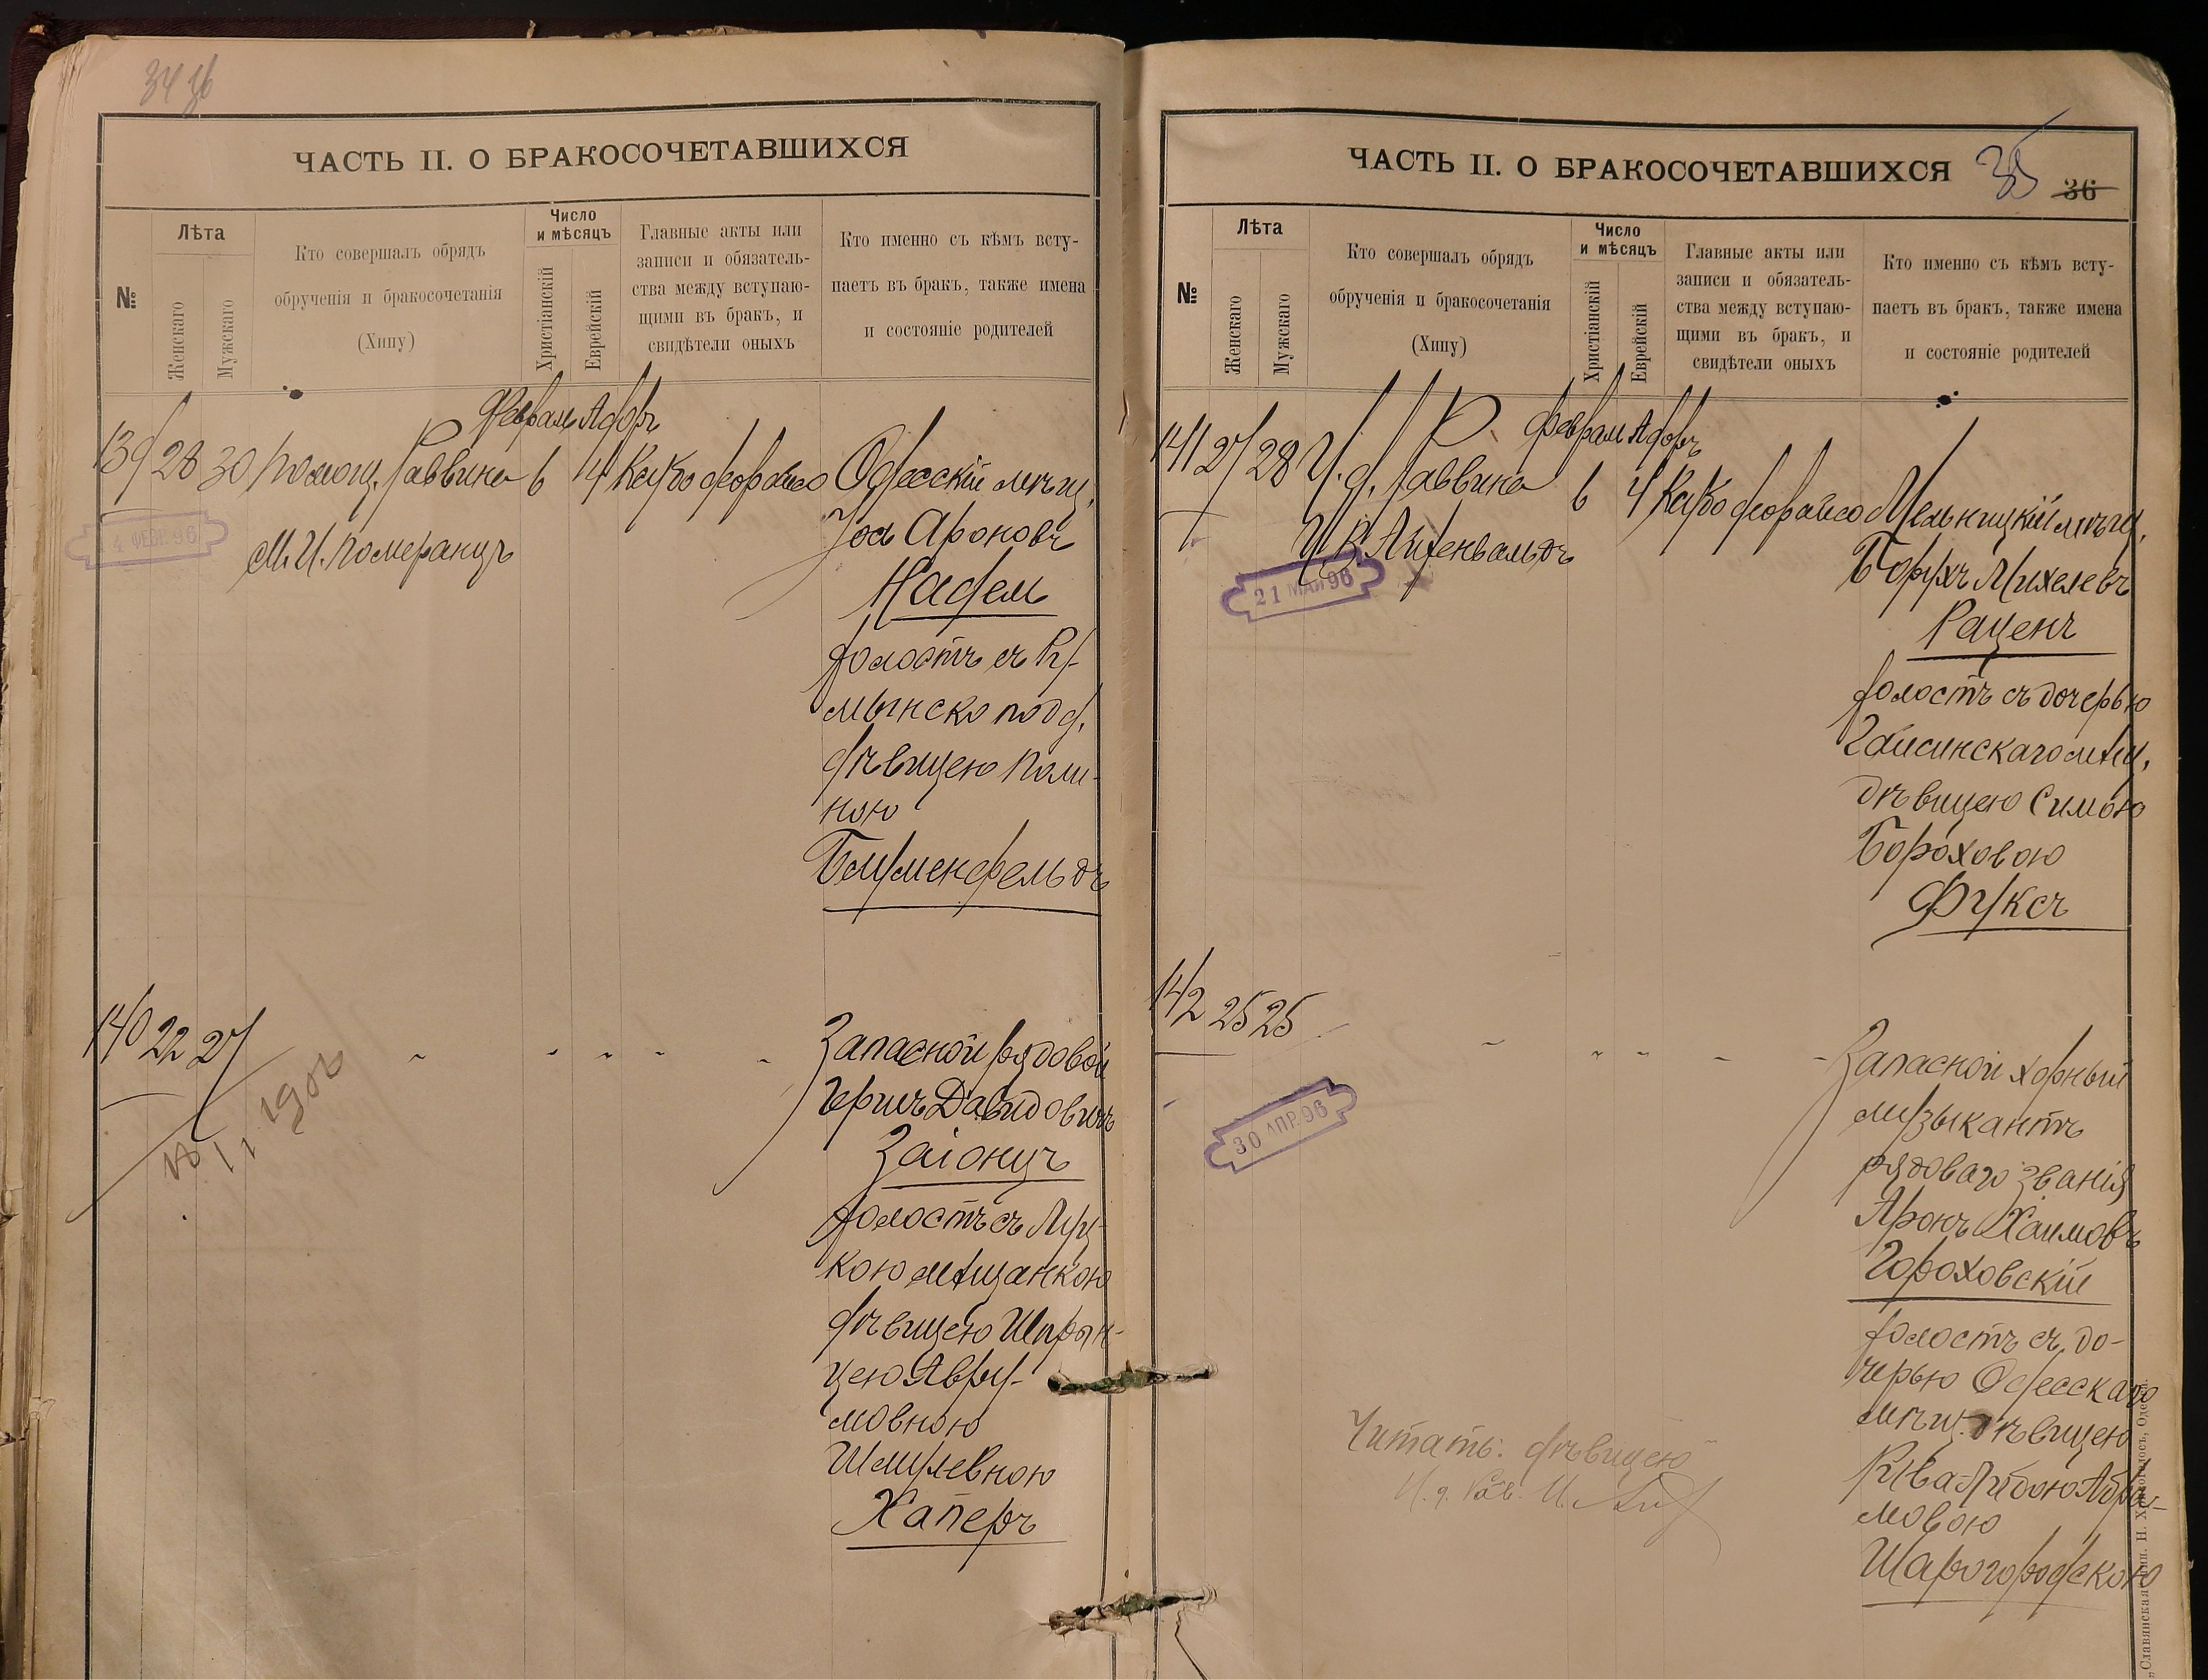 34 36
ЧАСТЬ II. О БРАКОСОЧЕТАВШИХСЯ
№
Лѣта
Женскаго
Мужскаго
Кто совершалъ обрядъ
обрученія и бракосочетанія
(Хипу)
Число
и мѣсяцъ
Христіанскій
Еврейскій
Главные акты или
записи и обязатель-
ства между вступаю-
щими въ бракъ, и
свидѣтели оныхъ
Кто именно съ кѣмъ всту-
паетъ въ бракъ, также имена
и состояніе родителей
Февраль Адоръ
139 28 30 Помощ. Раввина 6 4
М. И. Померанцъ
4 ФЕВР. 96
Одесскій мѣщ.
Іоэль Ароновъ
Надель
холостъ съ Ру-
мынско подд.
дѣвицею Поли-
ною
Блуменфельдъ
140 22 27 " " " " "
Запасной рядовой
Гершъ Давидовичъ
Заіонцъ
холостъ съ Луц-
кою мѣщанкою
дѣвицею Шпрын-
цею Авру-
мовною
Шмулевною
Хаперъ
ЧАСТЬ II. О БРАКОСОЧЕТАВШИХСЯ
35
36
№
Лѣта
Женскаго
Мужскаго
Кто совершалъ обрядъ
обрученія и бракосочетанія
(Хипу)
Число
и мѣсяцъ
Христіанскій
Еврейскій
Главные акты или
записи и обязатель-
ства между вступаю-
щими въ бракъ, и
свидѣтели оныхъ
Кто именно съ кѣмъ всту-
паетъ въ бракъ, также имена
и состояніе родителей
Февраль Адоръ
141 27 28 И. д. Раввина 6 4
И. В. Айзенвальдъ
21 МАЙ 96
Мельницкій мѣщ.
Борухъ Михелевъ
Раценъ
холостъ съ дочерью
Гайсинскаго мѣщ.
дѣвицею Симою
Бороховою
Фуксъ
142 25 25 " " " " "
30 АПР. 96
Запасной хорный
музыкантъ
рядоваго званія
Аронъ Хаимовъ
Гороховскій
холостъ съ до-
черью Одесскаго
мѣщ. дѣвицею
Рыва-Лидою Абра-
мовою
Шарогородскою
Читать: дѣвицею
И. д. Рав.
„Славянская" тип. Н. Хрисогелосъ, Одесса.